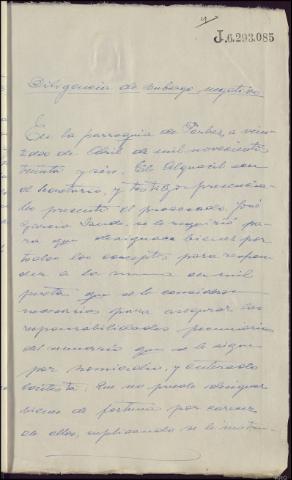 J.6.293.085
Diligencia de embargo negativo
En la parroquia de Forbes, a vein
de Abril de mil novecientos
treinta y seis. El Alguacil con
el Secretario, y testigos presencia
les presente el procesado, José
García se le requirió pa
ra que designase bienes por
todos los conceptos para respon
der a la suma de mil
pesetas que se le consideran
necesarios para asegurar las
responsabilidades pecuniarias
del sumario que se le sigue
por homicidio, y enterado
contesta: Que no puede designar
bienes de fortuna por carecer
de ellos, suplicando se le